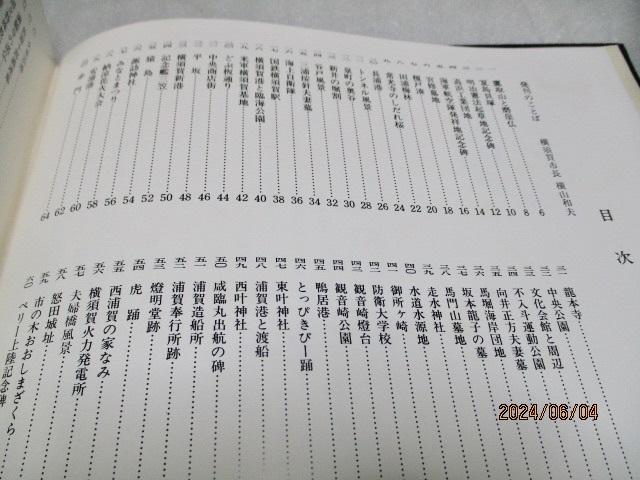 目次
発刊のことば 横須賀市長 横山和夫
鷹取山と磨崖仏 6
夏島貝塚 8
明治憲法起草地記念碑 10
追浜工業団地 12
海軍航空隊発祥地記念碑 14
官修墓地 16
榎戸湊 18
田浦梅林 20
22
長浦港 24
トンネル風景 26
28
新井の堀割 30
谷戸風景 32
三浦按針夫妻墓 34
海上自衛隊 36
国鉄横須賀駅 38
横須賀港と臨海公園 40
米軍横須賀基地 42
どぶ板通り 44
中央商店街 46
平坂 48
横須賀新港 50
記念艦三笠 52
猿島 54
諏訪神社 56
みなとまつり 58
納涼花火大会 60
安浦港 62
64
三一 龍本寺
三二 中央公園
三三 文化会館と周辺
三四 不入斗運動公園
三五 向井正方夫妻墓
三六 馬堀海岸団地
三七 坂本龍子の墓
三八 馬門山墓地
三九 走水神社
四〇 水道水源地
四一 御所ヶ崎
四二 防衛大学校
四三 観音崎燈台
四四 観音崎公園
四五 鴨居港
四六 とっぴきぴー踊
四七 東叶神社
四八 浦賀港と渡船
四九 西叶神社
五〇 咸臨丸出航の碑
五一 浦賀造船所
五二 浦賀奉行所跡
五三 燈明堂跡
五四 虎踊
五五 西浦賀の家なみ
五六 横須賀火力発電所
五七 夫婦橋風景
五八 怒田城址
五九 市の木おおしまざくら
六〇 ペリー上陸記念碑
2024/06/04